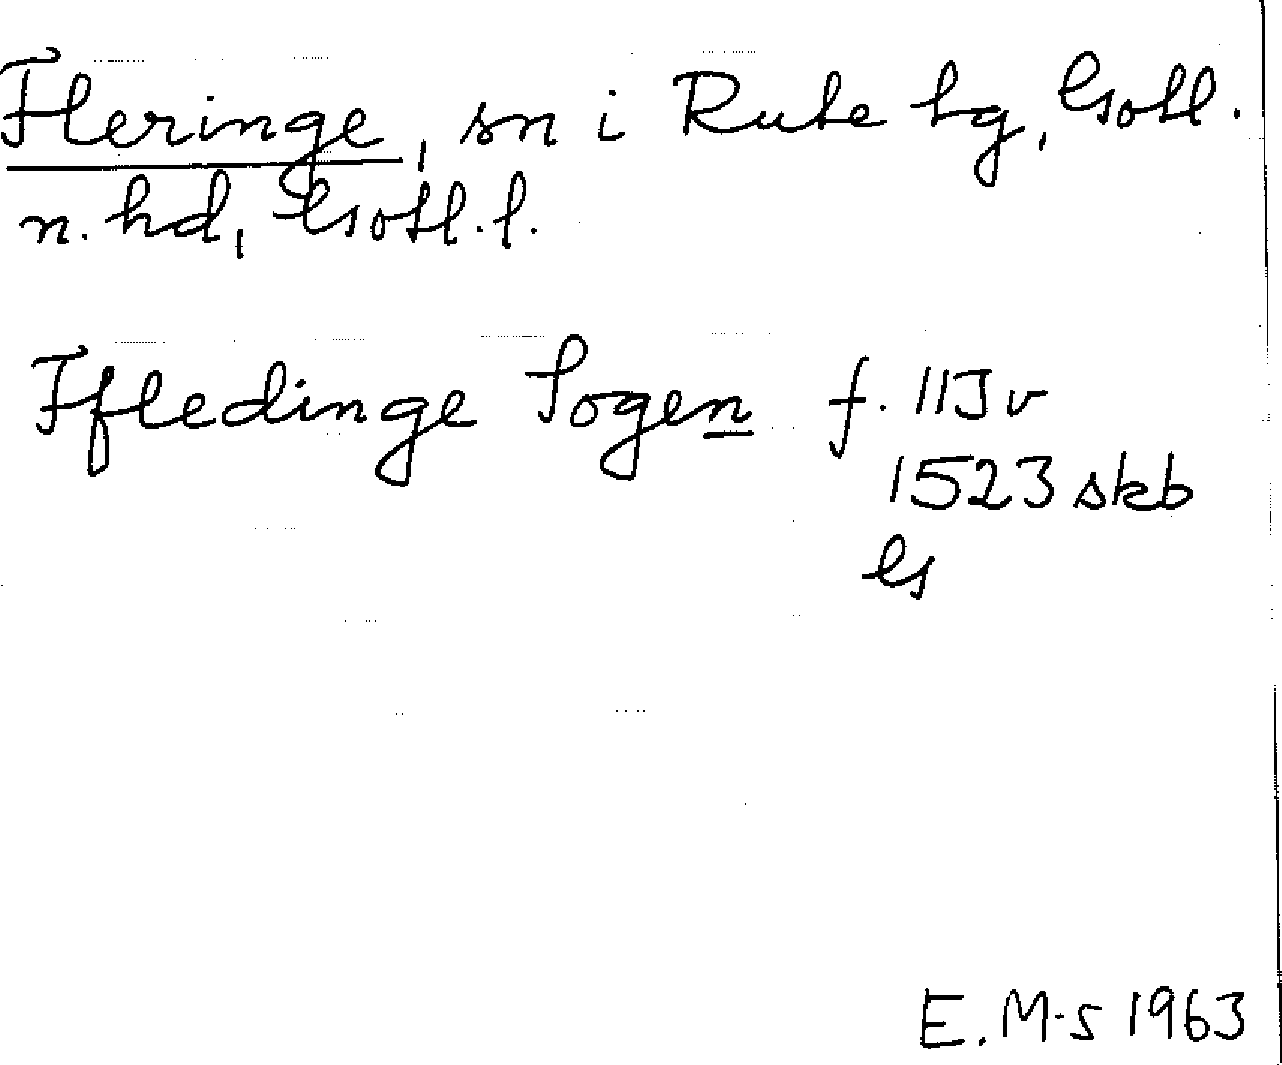 Fleringe, sn i Rute tg, Gotl.
n. hd, Gotl. l.
Ffledinge Sogen f. 113 v
1523 skb
G
E. M-s 1963